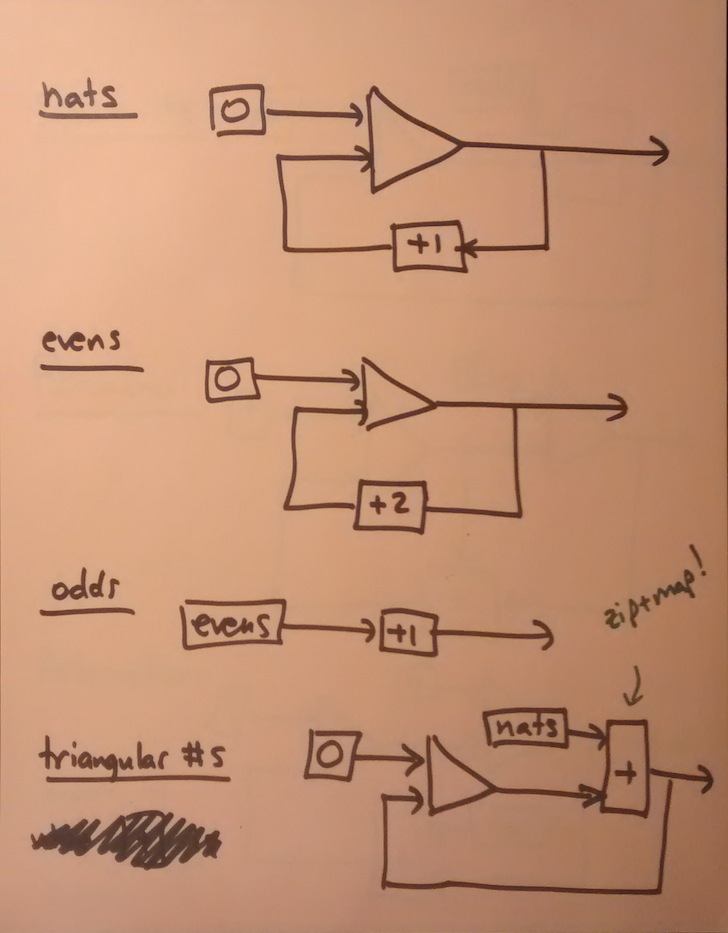 nats
0
+1
evens
0
+2
odds
evens
+1
zip+map!
triangular #s
0
nats
+